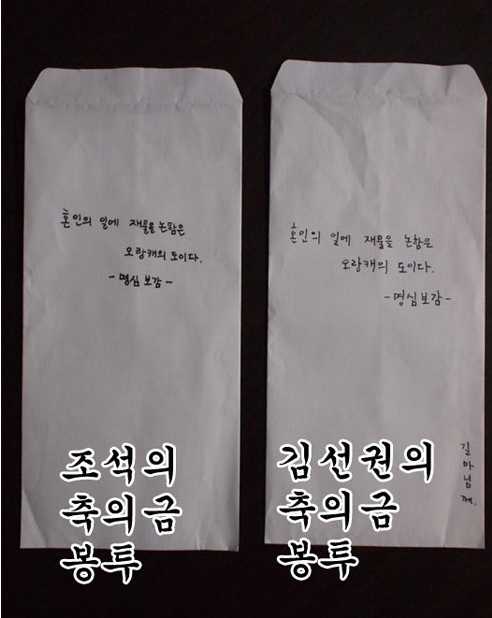 혼인의 일에 재물을 논함은
오랑캐의 도이다.
-명심보감-
조석의
축의금
봉투
혼인의 일에 재물을 논함은
오랑캐의 도이다.
-명심보감-
길마님께.
김선권의
축의금
봉투